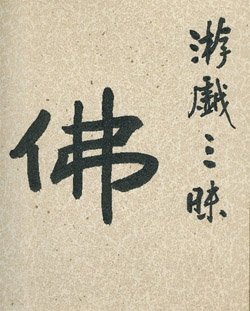 游戲三昧
佛